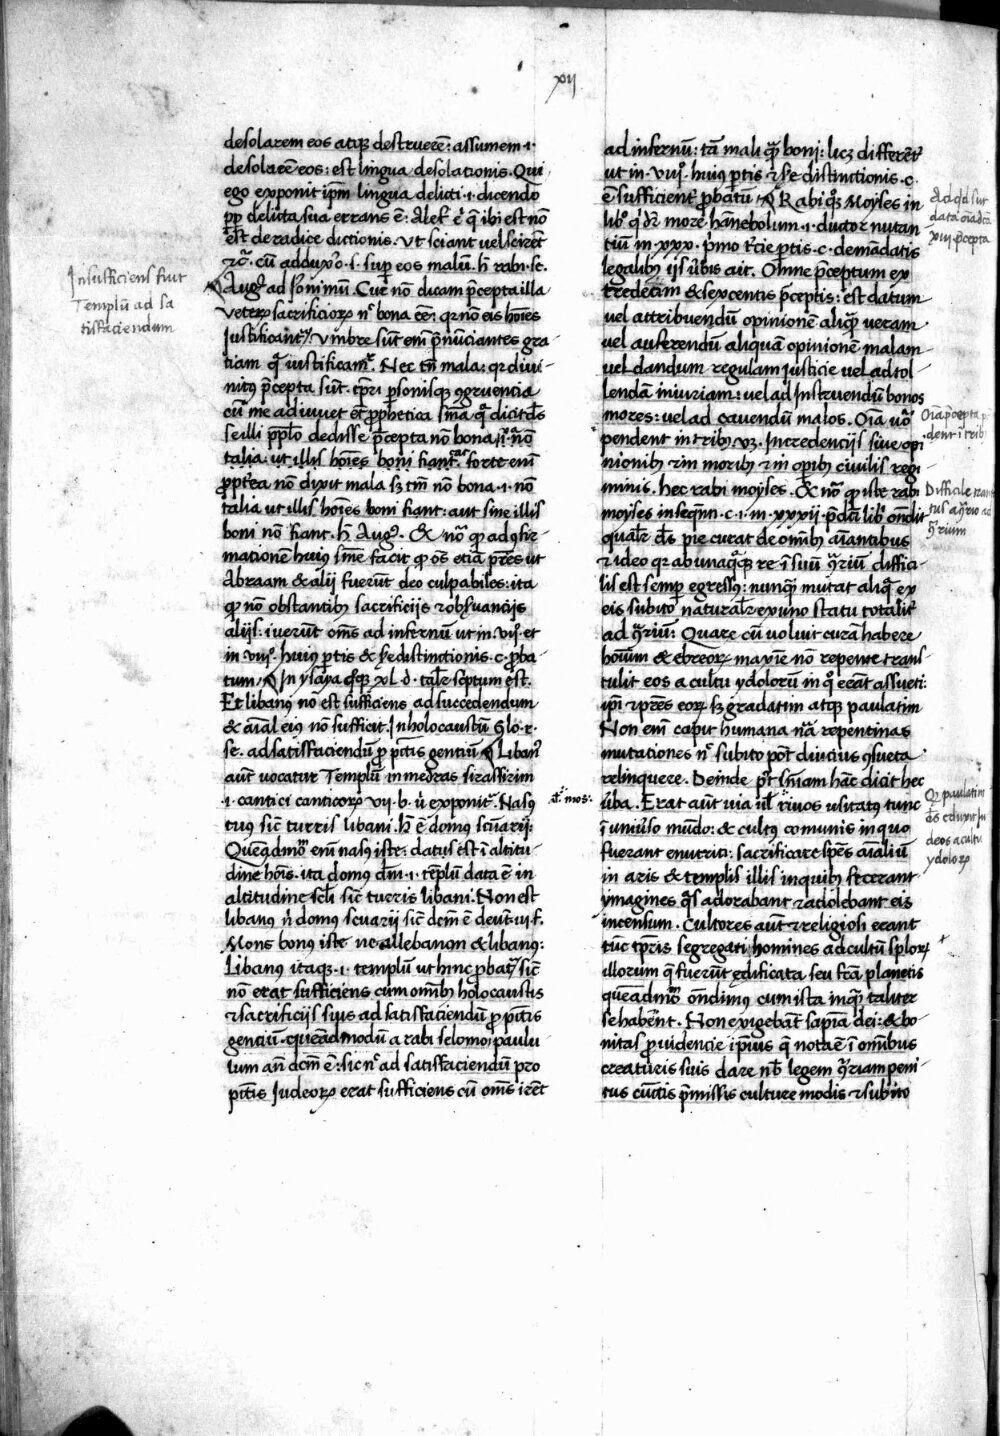 xij
desolarem eos atqꝫ destruerē: assumem ·i·
desolarē eos: est lingua desolationis. Qui
ego exponit ip̄m lingua delicti ·i· dicendo
ꝓꝑ delicta sua errans ē: Alek̄ ē qͣ ibi est nō
ēst de radice dictionis. Vt sciant vel scirēt
⁊c̄. cū adduxō ·i· suꝑ eos malū. h̄ rabi. se.
Augꝰ ad Ioniniū. Cur nō dicam p̄cepta illa
veterꝝ sacrificioꝝ nō bona eē: qr nō eis hoīes
Justificantᷣ: vmbre sūt em̄ p̄nūciantes gra-
tiam qͣ iustificamᷣ. Nec tn̄ mala: qr divi-
nitꝰ p̄cepta sūt. tꝑri ꝑsonisqꝫ ꝯgruencia
cū me adiuuet et̄ ꝓphetica sn̄ia qͣ dicit d̄s
se illi pp̄lo dedisse p̄cepta nō bona ·i· nō
talia. ut illis hoīes boni fiant. forte eni
ꝓpt̄ea nō dixit mala sꝫ tm̄ nō bona ·i· nō
talia ut illis hoīes boni fiant: aut sine illis
boni nō fiant. h̄ Augꝰ. Et nōͣ qꝫ ad ꝯfir-
mationē huiꝰ sn̄ie facit qꝫ oēs etiā pr̄es ut
Abraam & alij fuerūt deo culpabiles: ita
qꝫ nō obstantibꝫ sacrificijs ⁊ obsͤruancijs
alijs: iuerūt oms̄ ad infernū ut in vijᵒ. et
in viijᵒ. huiꝰ ꝑtis & p̄se distinctionis .c. ꝓba-
tum. In ysaya qꝫ xl .d. talr̄ sc̄ptum est.
Et libanus nō est sufficiens ad succedendum
& aīal eiꝰ nō sufficit. In holocaustū Glo. r.
se. ad satisfaciendū ꝓ pctīs gentiū Libanꝰ
aut̄ vocatur Templū in medras sirassirim
·i· cantici canticoꝝ vij. b. ū exponitᷣ. Nasꝰ
tuꝰ sic̄ turris libani. h̄ ē domus sc̄uarij:
Queqdmōᵘ em̄ nasꝰ iste: datus est ī altitu-
dine hōis. ita domus dn̄i ·i· tēplū data ē in
altitudine scl̄i sic̄ turris libani. Non est
libanus n̄ domus sc̄uarij sic̄ dcm̄ ē deut. iij. f.
Mons bonꝰ iste ne allebanan & libanꝰ:
Libanus itaqꝫ ·i· templū ut hinc ꝓbatᷣ sic̄
nō erat sufficiens cum omnibꝫ holocaustis
⁊ sacrificijs suis ad satisfaciendū ꝓ pctīs
gentiū. queādmodū a rabi selomo paulu-
lum an̄ dcm̄ ē: sic nᶜ ad satisfaciendū pro
pctīs Judeoꝝ erat sufficiens cū oms̄ irēt
ad infernū: tā mali qꝫ boni: licꝫ differēt̄
ut in viijᵒ. huiꝰ ꝑtis ⁊ p̄se distinctionis .c.
ē sufficient̄ ꝓbatū. Rabi qͦꝫ Moyses in
libᵒ qͥ dr̄ more hānebolum ·i· ductor nutan-
tiū in xxxᵒ. p̄mo tc̄ie ꝑtis .c. de mādatis
legalibꝫ ijs ūbis ait. Omne p̄ceptum ex
tredecim & sexcentis p̄ceptis: est datum
vel attribuendū opinionē aliqͣ veram
vel auferendū aliquā opinionē malam
vel dandum regulam justicie vel ad tol-
lendā iniuriam: vel ad Instruendū bonos
mores: vel ad cauendū malos. Oīa ūo
pendent in tribꝫ vꝫ. In credencijs siue opi-
nionibꝫ ⁊ in moribꝫ ⁊ in oꝑibꝫ ciuilis regi-
minis. hec rabi moyses. Et nōͣ qꝫ iste rabi
moyses in seqn̄ti .c. ·i· in xxxij. p̄dc̄i libᵒ on̄dit
qualr̄ d̄s pie curat de om̄ibꝫ aīantibus
⁊ ideo qr ab unaqͣqꝫ re ī suū ꝯ̄riū diffici-
lis est semꝑ egressꝰ: nunqͣ mutat aliqͣ ex
eis subito naturalr̄ ex uno statu totalit̄
ad ꝯ̄riū: Quare cū voluit curā habere
hoīum & ebreoꝝ maxīe nō repente trans-
tulit eos a cultu ydoloꝝ in qᵒ erāt assueti:
ip̄i ⁊ pr̄es eoꝝ sꝫ gradatim atqꝫ paulatim
Non em̄ capit humana nr̄a repentinas
mutationes nᶜ subito pōt diucius ꝯsueta
relinquere. Deinde pᵗ sn̄iam hāc dicit hec
ūba. Erat aut̄ via ul̄ riuos vsitatꝰ tunc
ī vniūso mūdo: & cultꝰ comunis in quo
fuerant enutriti: sacrificare spēs aīaliū
in aris & templis illis in quibꝫ fecerant
ymagines qͣs adorabant ⁊ adolebant eis
incensum. Cultores aut̄ ⁊ religiosi erant
tūc tꝑris segregati homines ad cultū sploꝝ
illorum qͣ fuerūt edificata seu fc̄a planetis
queādmōᵘ on̄dimꝰ cum ista inqꝫ taliter
se habent. Non exigebāt sapīa dei: & bo-
nitas ꝓuidencie ip̄ius qͣ nota ē ī omībus
creaturis suis dare nob̄ legem ꝯ̄riam peni-
tus cūctis p̄missis culture modis ⁊ subito
Insufficiens fuit
Templū ad sa
tisfaciendum
ul̄ mos:
Ad qd sūt
data oīa dcā
xiij p̄cepta
Oīa p̄cepta pē
dent ī trib
Difficile trān
tus a ꝯ̄rio ad
ꝯ̄rium
Qꝫ paulatim
d̄s eduxit ju
deos a cultu
ydoloꝝ